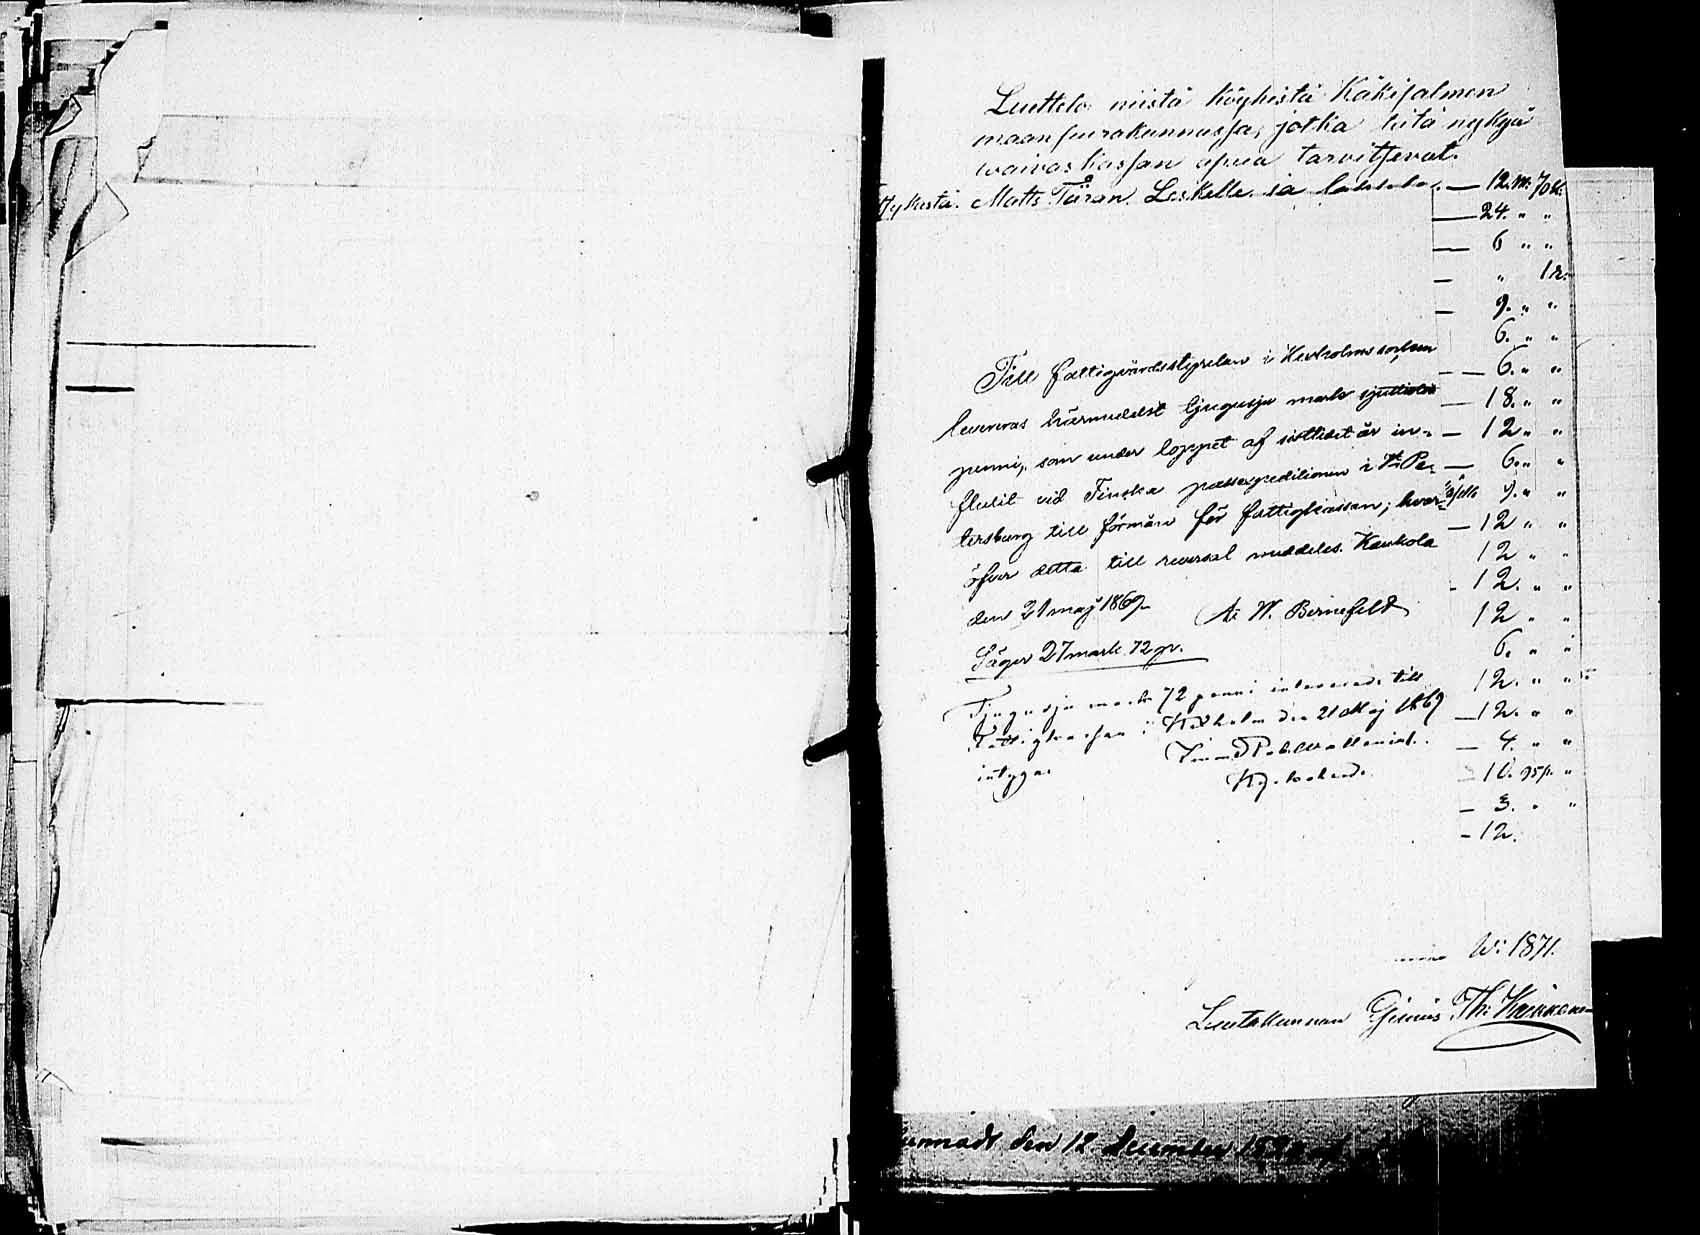 Luettelo niistä köyhistä Käkisalmen
maanseurakunnassa, jotka tätä nykyä
waivaskassan apua tarvitsevat.
Matts Leskelle ja — 12 M: 70
— 24. " "
— 6 " "
— "
— 9. " "
6. " "
— 6. " "
— 18. " "
— 12 " "
— 6. " "
9. " "
— 12 " "
12 " "
- 12. " "
12 " "
6. " "
12. " "
— 12. " "
— 4. " "
— 10. 95 p. "
— 3. " "
- 12.
Till fattigvårdsstyrelsen i Kexholms socken
levereras härmedelst tjugusju mark sjuttiotvå
penni, som under loppet af sistlidet år in-
flutit vid Finska passexpeditionen i St. Pe-
tersburg till förmån för fattigkassan; hvar-
öfver detta till reversal meddeles. Kaukola
den 21 maj 1869. W. Bernefeldt
Säger 27 mark 72 pi.
Tjugusju mark 72 penni inlevererade till
Fattigkassan i Kexholm den 21 Maj 1869
intygar
W: 1871.
Lautakunnan Esimies Th: Kärkkäinen
den 12 december